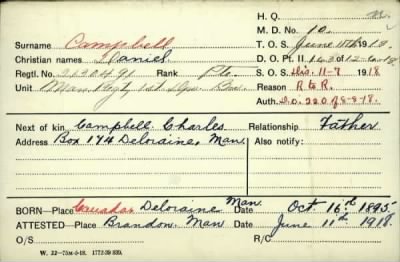 H. Q.
M. D. No. 10.
Surname Campbell T. O. S. June 11th 1918.
Christian names Daniel. D. O. Pt. II 143 of 12-6-18
Regtl. No. 2130491 Rank Pte. S. O. S. Dis. 11-7 1918
Unit 1st Dep. Bn. Reason R to R.
Auth. D.O. 220 of 8-8-18.
Next of kin Campbell Charles Relationship Father
Address Box 174 Deloraine, Man Also notify:
BORN—Place Canada, Deloraine Man. Date Oct 16th 1895
ATTESTED—Place Brandon, Man Date June 11th 1918.
O/S R/C
W. 22—75M-5-18. 1772-39 839.